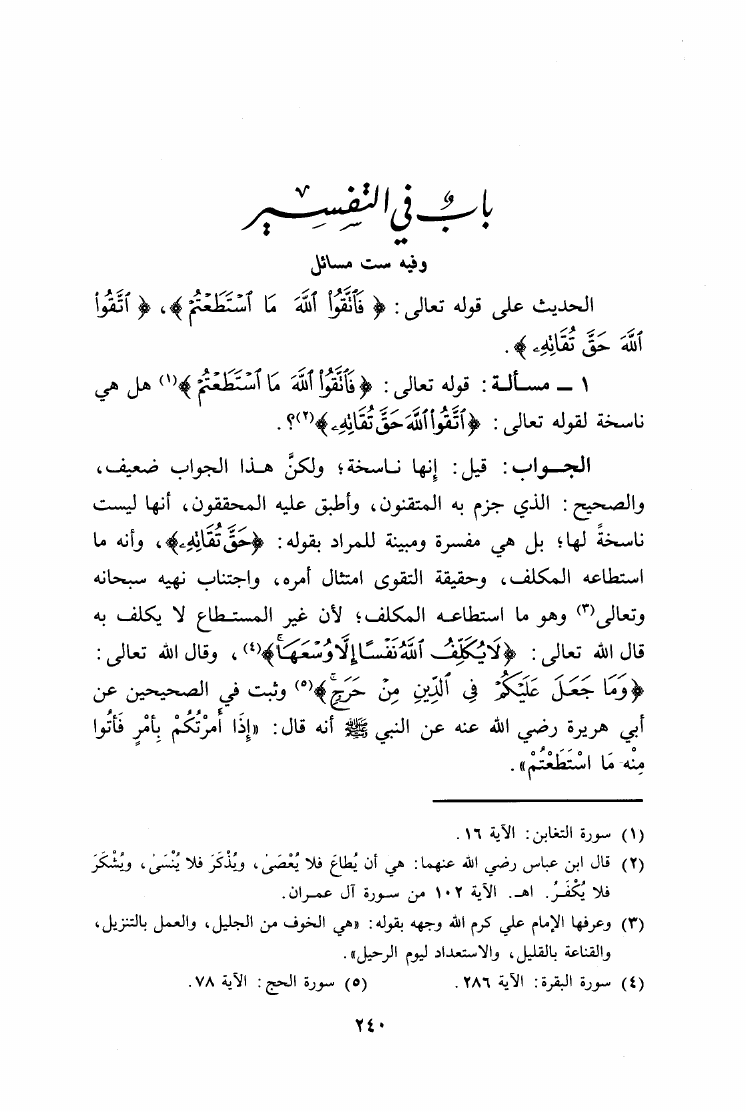 بابٌ في التفسير
وفيه ست مسائل
الحديث على قوله تعالى: ﴿ فَٱتَّقُوا۟ ٱللَّهَ مَا ٱسْتَطَعْتُمْ ﴾، ﴿ ٱتَّقُوا۟
ٱللَّهَ حَقَّ تُقَاتِهِۦ ﴾.
١ ـ مسـألـة: قوله تعالى: ﴿فَٱتَّقُوا۟ ٱللَّهَ مَا ٱسْتَطَعْتُمْ﴾(١) هل هي
ناسخة لقوله تعالى: ﴿ٱتَّقُوا۟ ٱللَّهَ حَقَّ تُقَاتِهِۦ﴾(٢)؟.
الجـــواب: قيل: إنها نـاسخة؛ ولكنَّ هـذا الجواب ضعيف،
والصحيح: الذي جزم به المتقنون، وأطبق عليه المحققون، أنها ليست
ناسخةً لها؛ بل هي مفسرة ومبينة للمراد بقوله: ﴿حَقَّ تُقَاتِهِۦ﴾، وأنه ما
استطاعه المكلف، وحقيقة التقوى امتثال أمره، واجتناب نهيه سبحانه
وتعالى(٣) وهو ما استطاعـه المكلف؛ لأن غير المستـطاع لا يكلف به
قال الله تعالى: ﴿لَا يُكَلِّفُ ٱللَّهُ نَفْسًا إِلَّا وُسْعَهَا ۚ﴾(٤)، وقال الله تعالى:
﴿وَمَا جَعَلَ عَلَيْكُمْ فِى ٱلدِّينِ مِنْ حَرَجٍ ۚ﴾(٥) وثبت في الصحيحين عن
أبي هريرة رضي الله عنه عن النبي ﷺ أنه قال: «إِذَا أَمَرْتُكُمْ بِأَمْرٍ فَأْتُوا
مِنْه مَا اسْتَطَعْتُمْ».
(١) سورة التغابن: الآية ١٦.
(٢) قال ابن عباس رضي الله عنهما: هي أن يُطاعَ فلا يُعْصَى، ويُذْكَرَ فلا يُنْسَى، ويُشْكَرَ
فلا يُكْفَـرُ. اهـ. الآية ١٠٢ من سـورة آل عمـران.
(٣) وعرفها الإمام علي كرم الله وجهه بقوله: «هي الخوف من الجليل، والعمل بالتنزيل،
والقناعة بالقليل، والاستعداد ليوم الرحيل».
(٤) سورة البقرة: الآية ٢٨٦. (٥) سورة الحج: الآية ٧٨.
٢٤٠